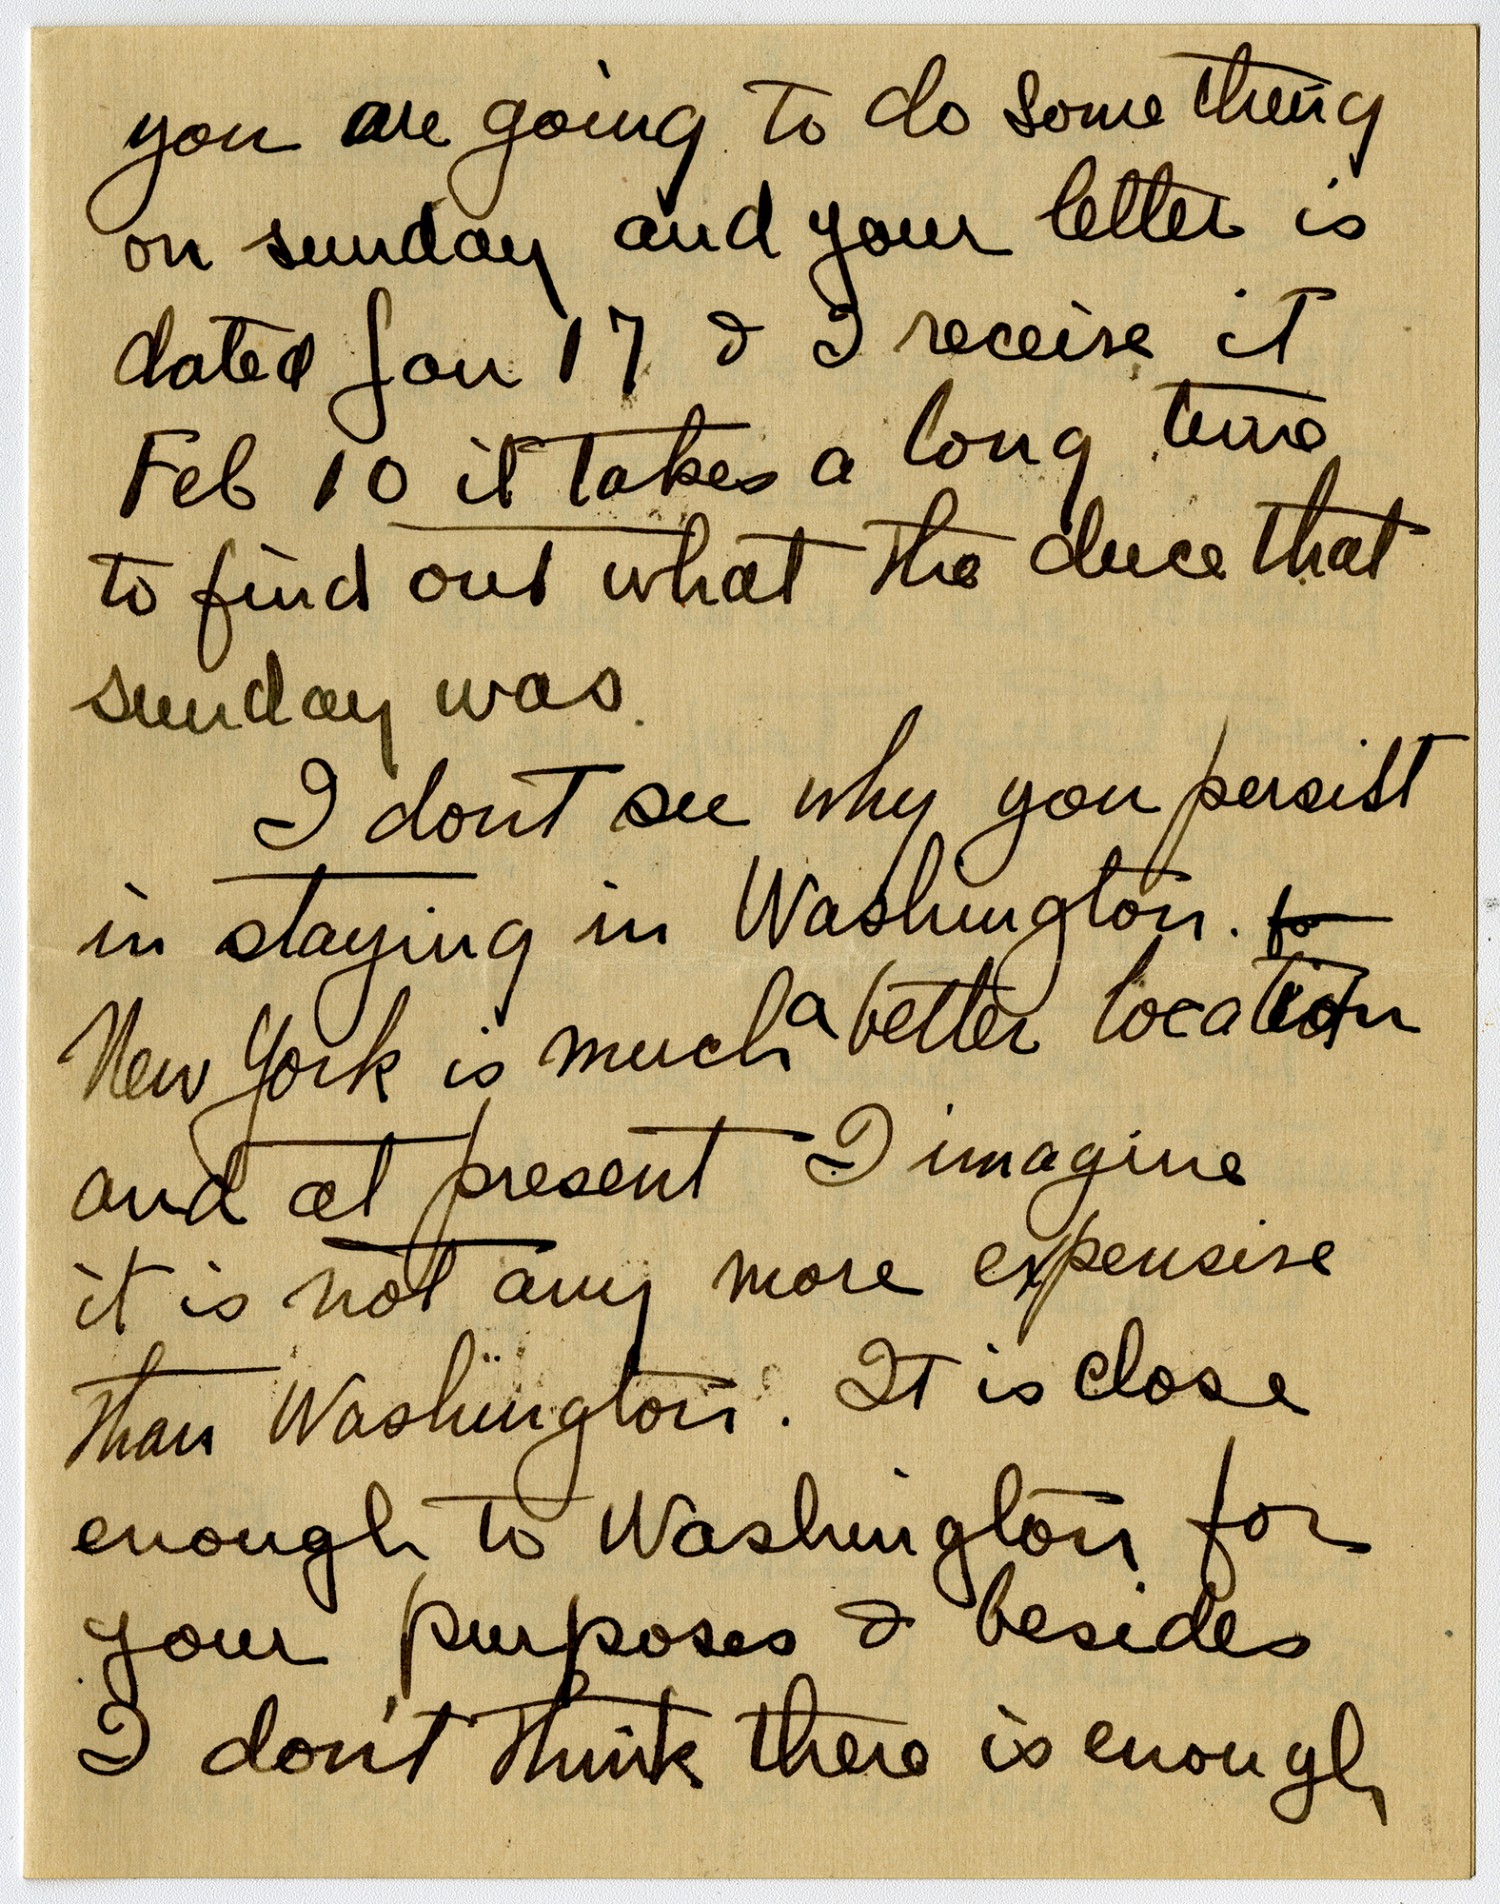 you are going to do something
on sunday and your letter is
dated Jan 17 & I receive it
Feb 10 it takes a long time
to find out what the duce that
sunday was.
I don't see why you persist
in staying in Washington. to
New York is much a better location
and at present I imagine
it is not any more expensive
than Washington. It is close
enough to Washington for
your purposes & besides
I don't think there is enough